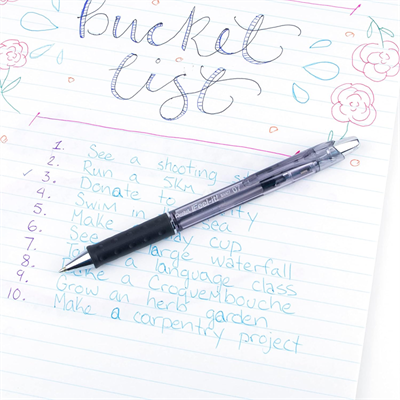 Bucket
List
1. See a shooting
2. Run a 5KM
✓ 3. Donate to
4. Swim in sea
5. Make cup
6. See large waterfall
7. a language class
8. Make a Croquembouche
9. Grow an herb garden
10. Make a carpentry project